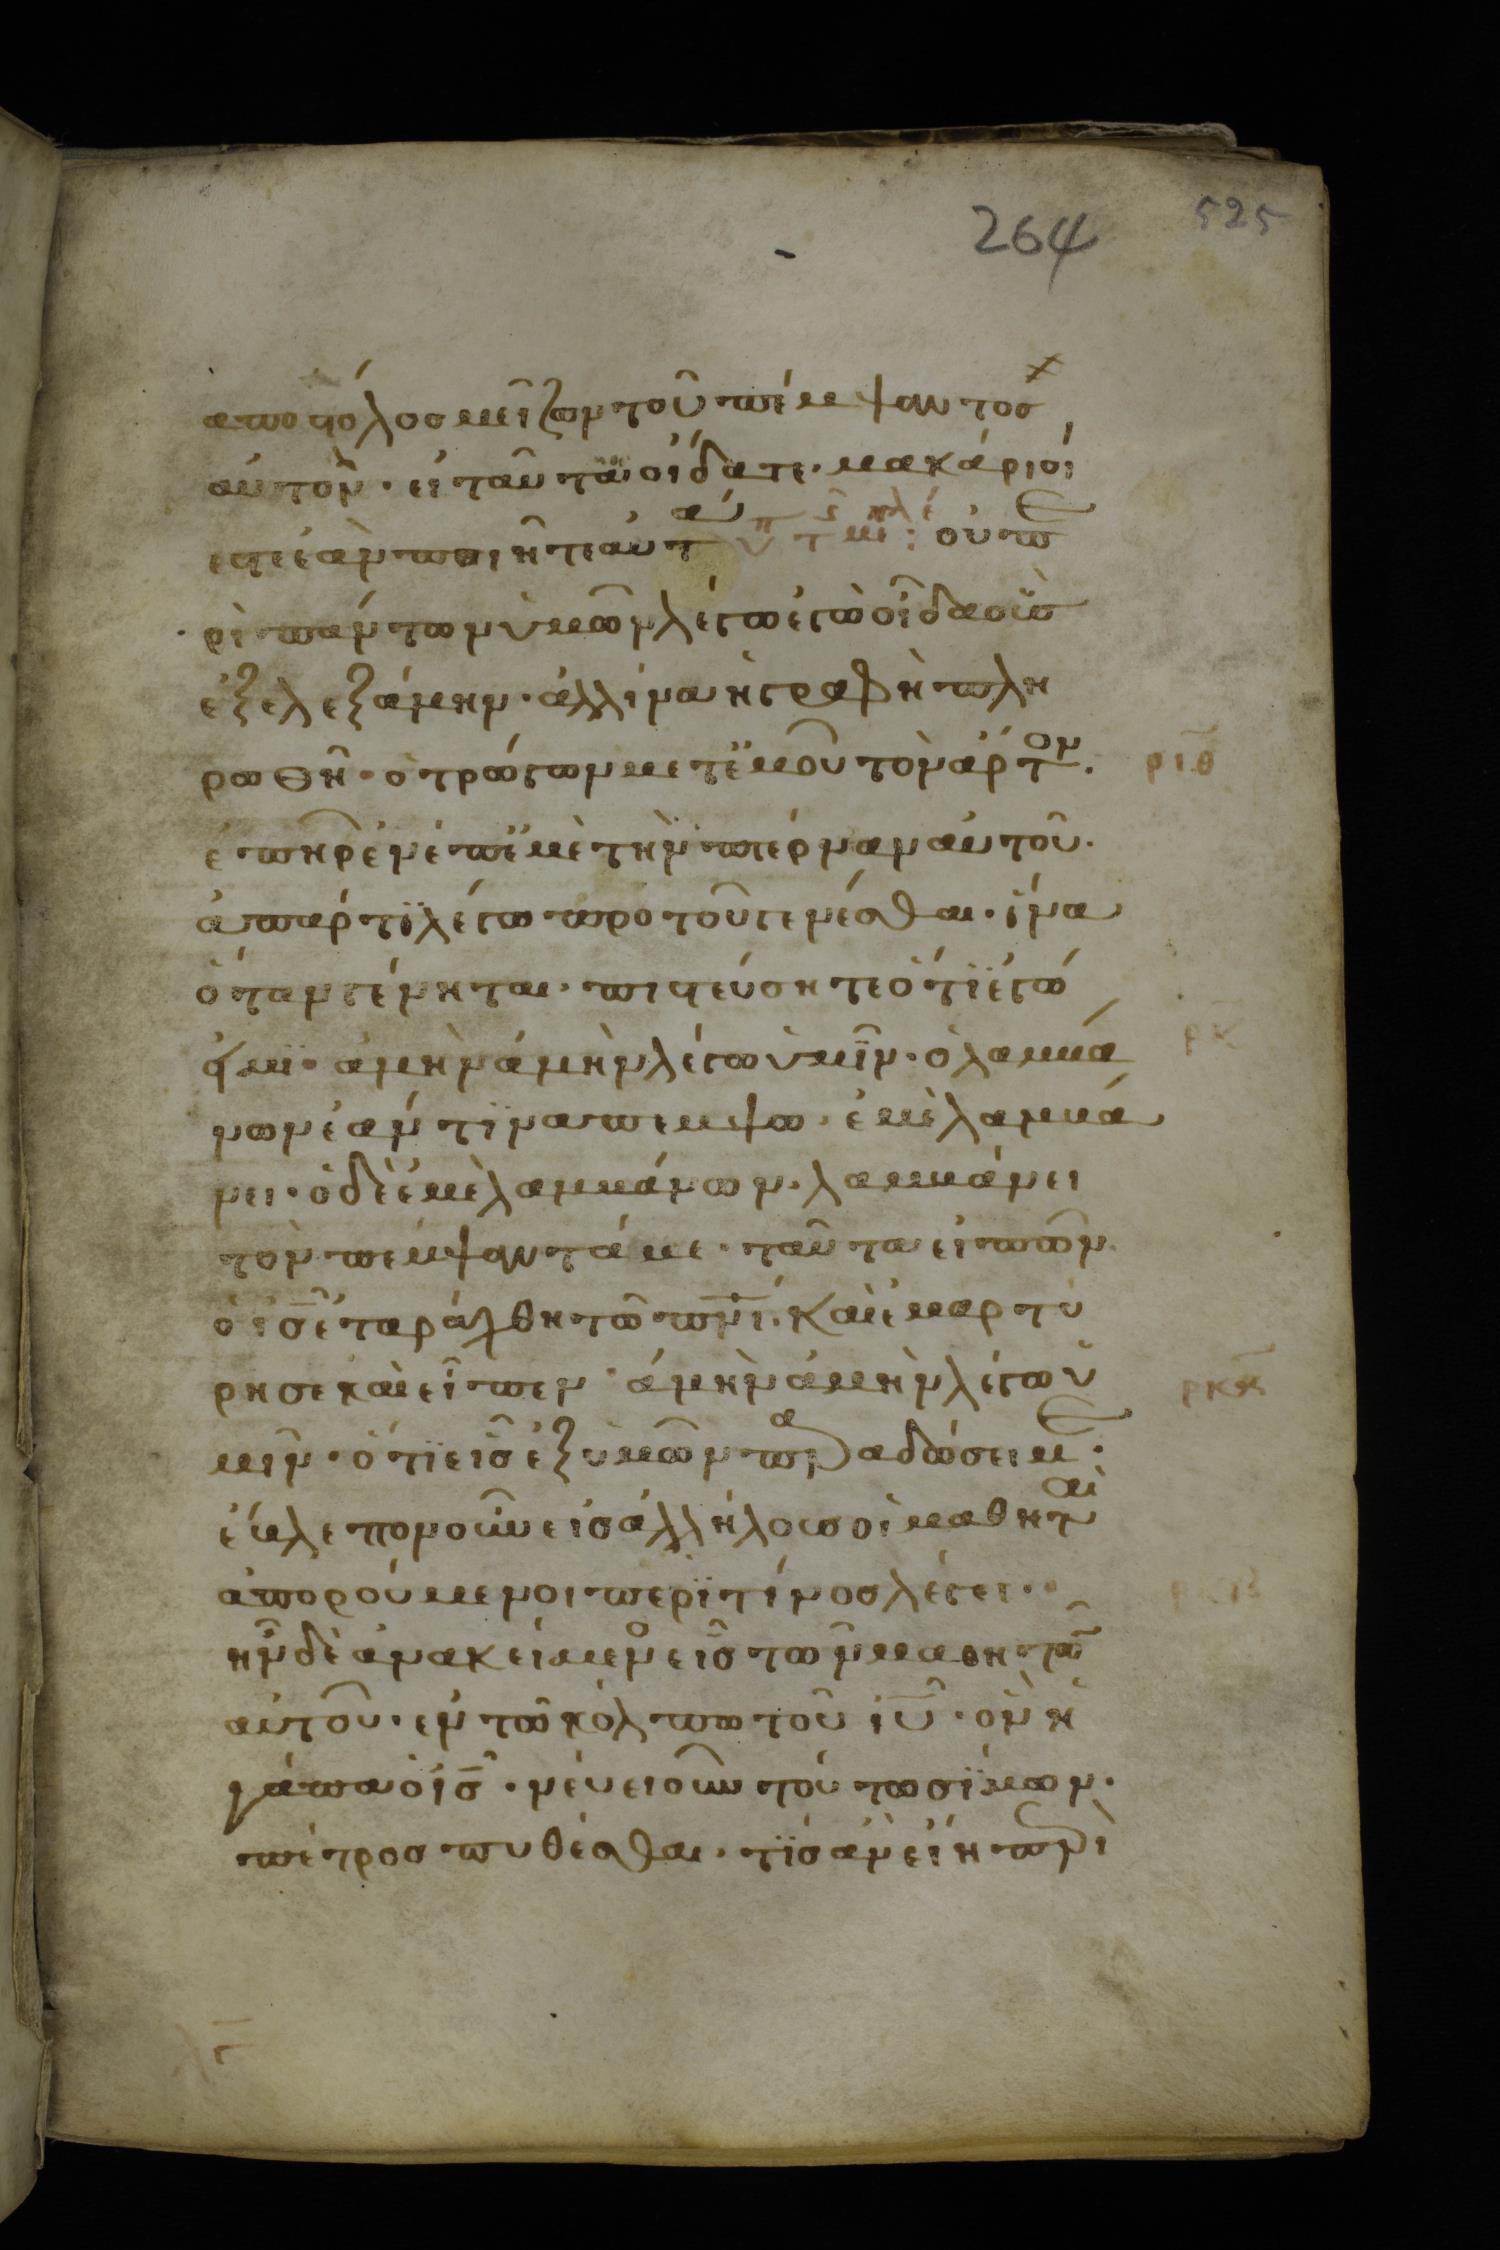 264 525
αποστόλος μεῖζων τοῦ πέμψαντος
αὐτὸν · εἰ ταῦτα οἴδατε · μακάριοί
εστε ἐὰν ποιῆτε αὐτά : οὐ πε
ρὶ πάντων ὑμῶν λέγω ἐγὼ οἶδα οὓς
ἐξελεξάμην · ἀλλ ίνα ἡ γραφὴ πλη
ρωθῆ · ὁ τρώγων μετ ἐμοῦ τὸν άρτον · ριθ
ἐπῆρεν ἐπ ἐμὲ τὴν πτέρναν αυτοῦ ·
ἀπάρτϊ λέγω προ τοῦ γενέσθαι · ϊνα
ὅταν γένηται · πιστεύσητε ὅτϊ ἐγώ
εἰμϊ · ἀμὴν ἀμὴν λέγω ὑμῖν · ὁ λαμβά ρκ
νων ἐάν τϊνα πεμψω · ἐμὲ λαμβά
νει · ὁ δὲ ἐμὲ λαμβάνων · λαμβάνει
τὸν πέμψαντά με · ταῦτα εἰπῶν
ὁ ις ἐταράχθη τῶ πνι · καὶ ἐμαρτύ
ρησε καὶ εἶπεν · ἀμὴν ἀμὴν λέγω ὑ
μῖν · ὅτϊ εἷς ἐξ ὑμῶν παραδώσει με :
ἔβλεπον οῦν εἰς ἀλλήλους οἱ μαθηταὶ
ἀπορούμενοι περϊ τίνος λέγει ·
ην δὲ ἀνακείμενος εἷς τῶν μαθητῶν
αὐτοῦ · ἐν τῶ κόλπω τοῦ ιυ · ὃν ἠ
γάπα ὁ ις · νεύει οῦν τούτω σϊμων ·
πέτρος πυθέσθαι · τϊς ἀν εἴη περὶ